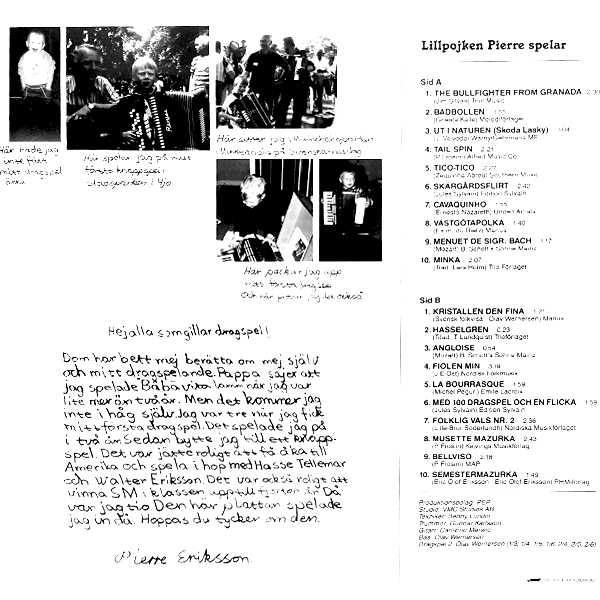 Här hade jag
inte fått
mitt dragspel
ännu
Här spelar jag på mitt
första knappspel i
stadsparken i Hjo
Här sitter jag i Minnehahaparken
Minneapolis på Svenskarnas dag
Här packar jag upp
mitt första dragspel
Och här provar jag det också
Hej alla som gillar dragspel!
Dom har bett mej berätta om mej själv
och mitt dragspelande. Pappa säjer att
jag spelade Bä bä vita lamm när jag var
lite mer än två år. Men det kommer jag
inte i håg själv. Jag var tre när jag fick
mitt första dragspel. Det spelade jag på
i två år. Sedan bytte jag till ett knapp-
spel. Det var jätteroligt att få åka till
Amerika och spela i hop med Hasse Tellemar
och Walter Eriksson. Det var också roligt att
vinna SM i klassen upp till fjorton år. Då
var jag tio. Den här plattan spelade
jag in då. Hoppas du tycker om den.
Pierre Eriksson.
Lillpojken Pierre spelar
Sid A
1. THE BULLFIGHTER FROM GRANADA 2:30
(Jim Silva) Trio Music
2. BADBOLLEN 1:55
(Gnesta Kalle) Melodiförlaget
3. UT I NATUREN (Skoda Lasky) 3:04
(J. Vejvoda) Warny/Gehrmans MF
4. TAIL SPIN 2:21
(P. Frosini) Alfred Music Co
5. TICO-TICO 2:27
(Zequinha Abreu) Southern Music
6. SKÄRGÅRDSFLIRT 2:42
(Jules Sylvain) Edition Sylvain
7. CAVAQUINHO 1:55
(Ernesto Nazareth) United Artists
8. VÄSTGÖTAPOLKA 1:40
9. MENUET DE SIGR. BACH 1:17
(Mozart) B. Schott's Söhne Mainz
10. MINKA 2:07
(Trad. Lars Holm) Trio Förlaget
Sid B
1. KRISTALLEN DEN FINA 1:21
(Svensk folkvisa. Olav Wernersen) Manus
2. HASSELGREN 0:23
(Trad. T Lundquist) Trioförlaget
3. ANGLOISE 0:54
(Mozart) B. Schott's Söhne Mainz
4. FIOLEN MIN 3:19
(J E Öst) Nordisk Folkmusik
5. LA BOURRASQUE 1:59
(Michel Peguri) Emile Lacroix
6. MED 100 DRAGSPEL OCH EN FLICKA 1:59
(Jules Sylvain) Edition Sylvain
7. FOLKLIG VALS NR. 2 2:36
(Lille-Bror Söderlundh) Nordiska Musikförlaget
8. MUSETTE MAZURKA 2:43
(P Frosini) Kayvings Musikförlag
9. BELLVISO 2:18
(P Frosini) MAP
10. SEMESTERMAZURKA 1:49
(Eric Olof Eriksson - Eric Olof Eriksson) PHM-förlag
Produktionsbolag: PEP
Studio: VMC Studios AB
Tekniker: Benny Lundin
Trummor: Gunnar Karlsson
Gitarr: Carl-Eric Mellard
Bas: Olav Wernersen
Dragspel 2: Olav Wernersen (1/3, 1/4, 1/5, 1/6, 2/4, 2/5, 2/6)